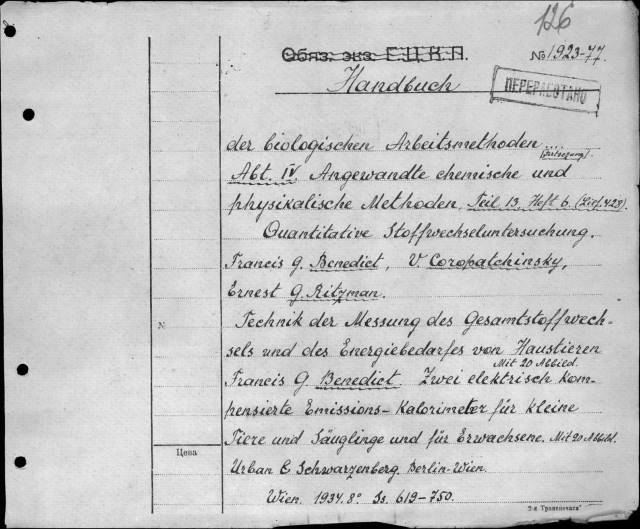 126
Обяз. экз. Г.Ц.К.П.
№ 1923-77.
Handbuch
ПЕРЕРАБОТАНО
der biologischen Arbeitsmethoden
Abt. IV. Angewandte chemische und
physikalische Methoden, Teil 13, Heft 6. (Lief. 428).
Quantitative Stoffwechseluntersuchung.
Francis G. Benedict, V. Coropatchinsky,
Ernest G. Ritzman.
Technik der Messung des Gesamtstoffwech-
sels und des Energiebedarfes von Haustieren
Mit 20 Abbild.
Francis G. Benedict. Zwei elektrisch kom-
pensierte Emissions-Kalorimeter für kleine
Tiere und Säuglinge und für Erwachsene. Mit 20 Abbild.
Urban & Schwarzenberg. Berlin-Wien.
Wien. 1934. 8° Ss. 619-750.
№
Цена